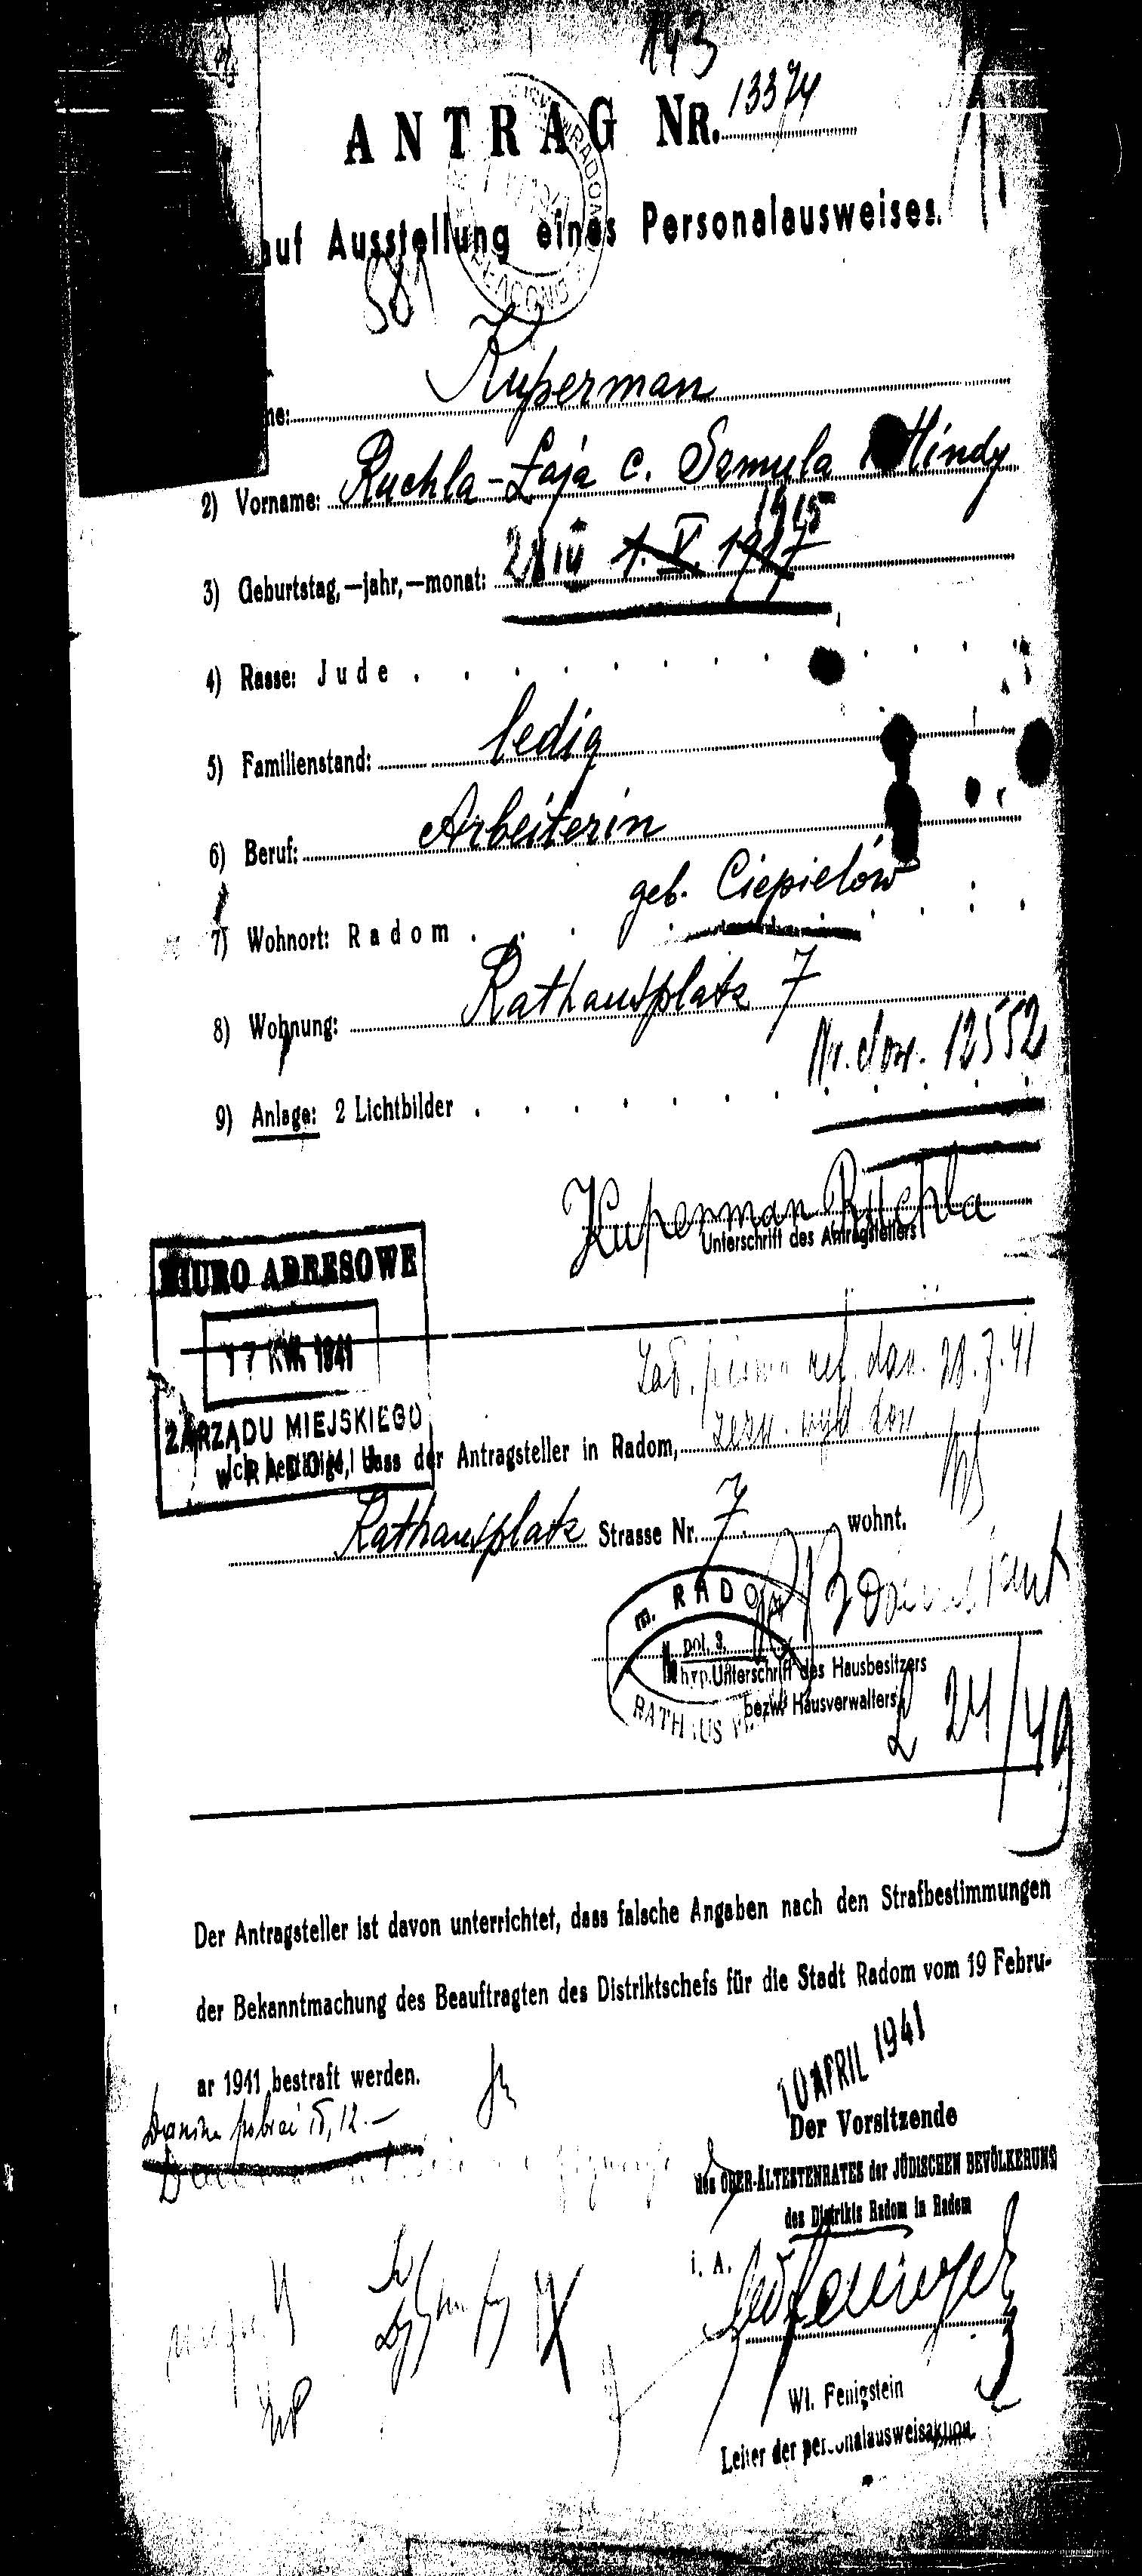 143
ANTRAG NR. 13374
auf Ausstellung eines Personalausweises.
581
Kuperman
2) Vorname: Ruchla-Łaja c. Samula i Hindy
1915
3) Geburtstag,—jahr,—monat: 1. V. 1917
4) Rasse: Jude
5) Familienstand: ledig
6) Beruf: Arbeiterin
geb. Ciepielów
7) Wohnort: Radom
8) Wohnung: Rathausplatz 7
Nr. dow. 12552
9) Anlage: 2 Lichtbilder
Kuperman Ruchla
Unterschrift des Antragstellers
BIURO ADRESOWE
17 KW. 1941
ZARZĄDU MIEJSKIEGO
w RADOMIU
Ich bestätige, dass der Antragsteller in Radom,
Rathausplatz Strasse Nr. 7 wohnt.
m. RADOM
pol. 3.
hyp.
RATHAUS
Unterschrift des Hausbesitzers
bezw. Hausverwalters
L 24/49
Der Antragsteller ist davon unterrichtet, dass falsche Angaben nach den Strafbestimmungen
der Bekanntmachung des Beauftragten des Distriktschefs für die Stadt Radom vom 19 Febru-
ar 1941 bestraft werden.
10 APRIL 1941
Der Vorsitzende
des OBER-ÄLTESTENRATES der JÜDISCHEN BEVÖLKERUNG
des Distrikts Radom in Radom
i. A.
Wl. Fenigstein
Leiter der personalausweisaktion